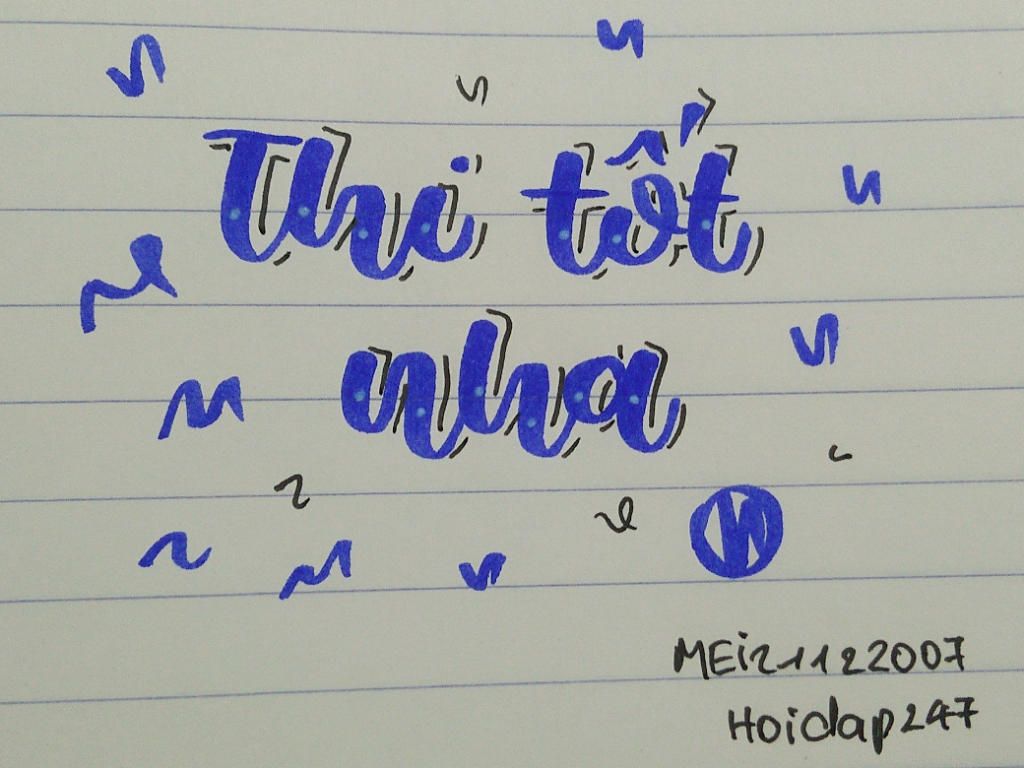 Thi tốt
nha
MEi21122007
Hoidap247